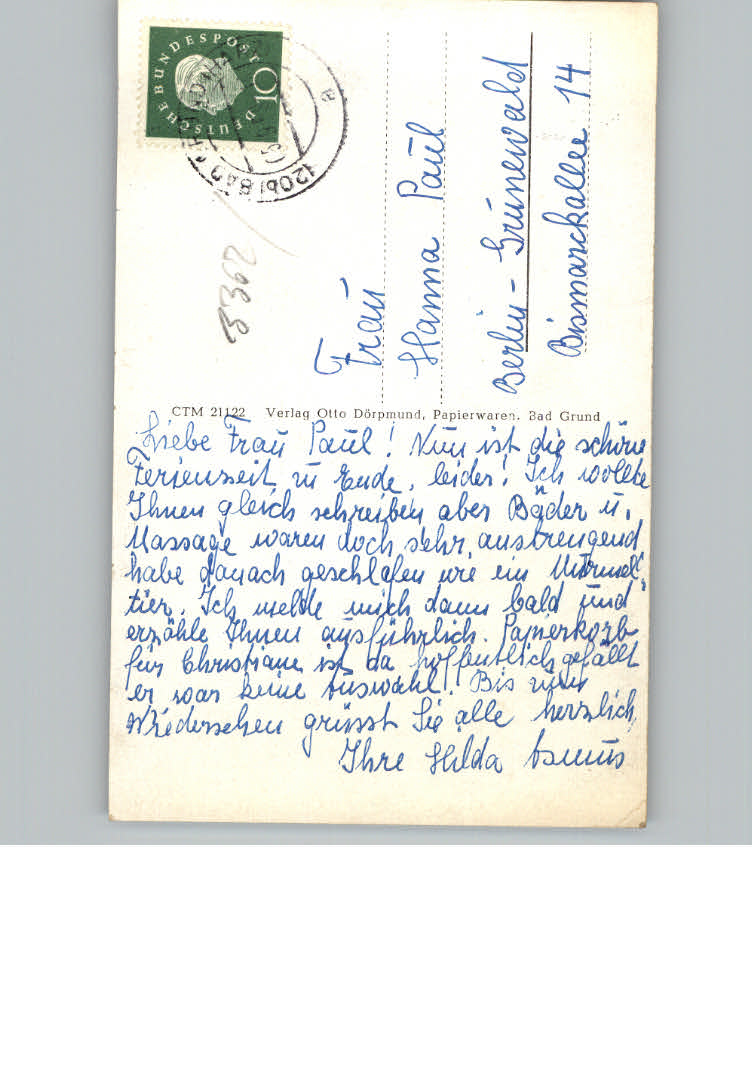 DEUTSCHE BUNDESPOST
10
(20b) BAD GRUND
a
3362
Frau
Hanna Paul
Berlin - Grünewald
Bismarckallee 14
CTM 21122 Verlag Otto Dörpmund, Papierwaren, Bad Grund
Liebe Frau Paul! Nun ist die schöne
Ferienzeit zu Ende, leider! Ich wollte
Ihnen gleich schreiben aber Bäder u.
Massage waren doch sehr anstrengend
habe danach geschlafen wie ein Murmel-
tier. Ich melde mich dann bald und
erzähle Ihnen ausführlich. Papierkorb
für Christiane ist da hoffentlich gefällt
er war keine Auswahl! Bis zum
Wiedersehen grüsst Sie alle herzlich
Ihre Hilda Asmus